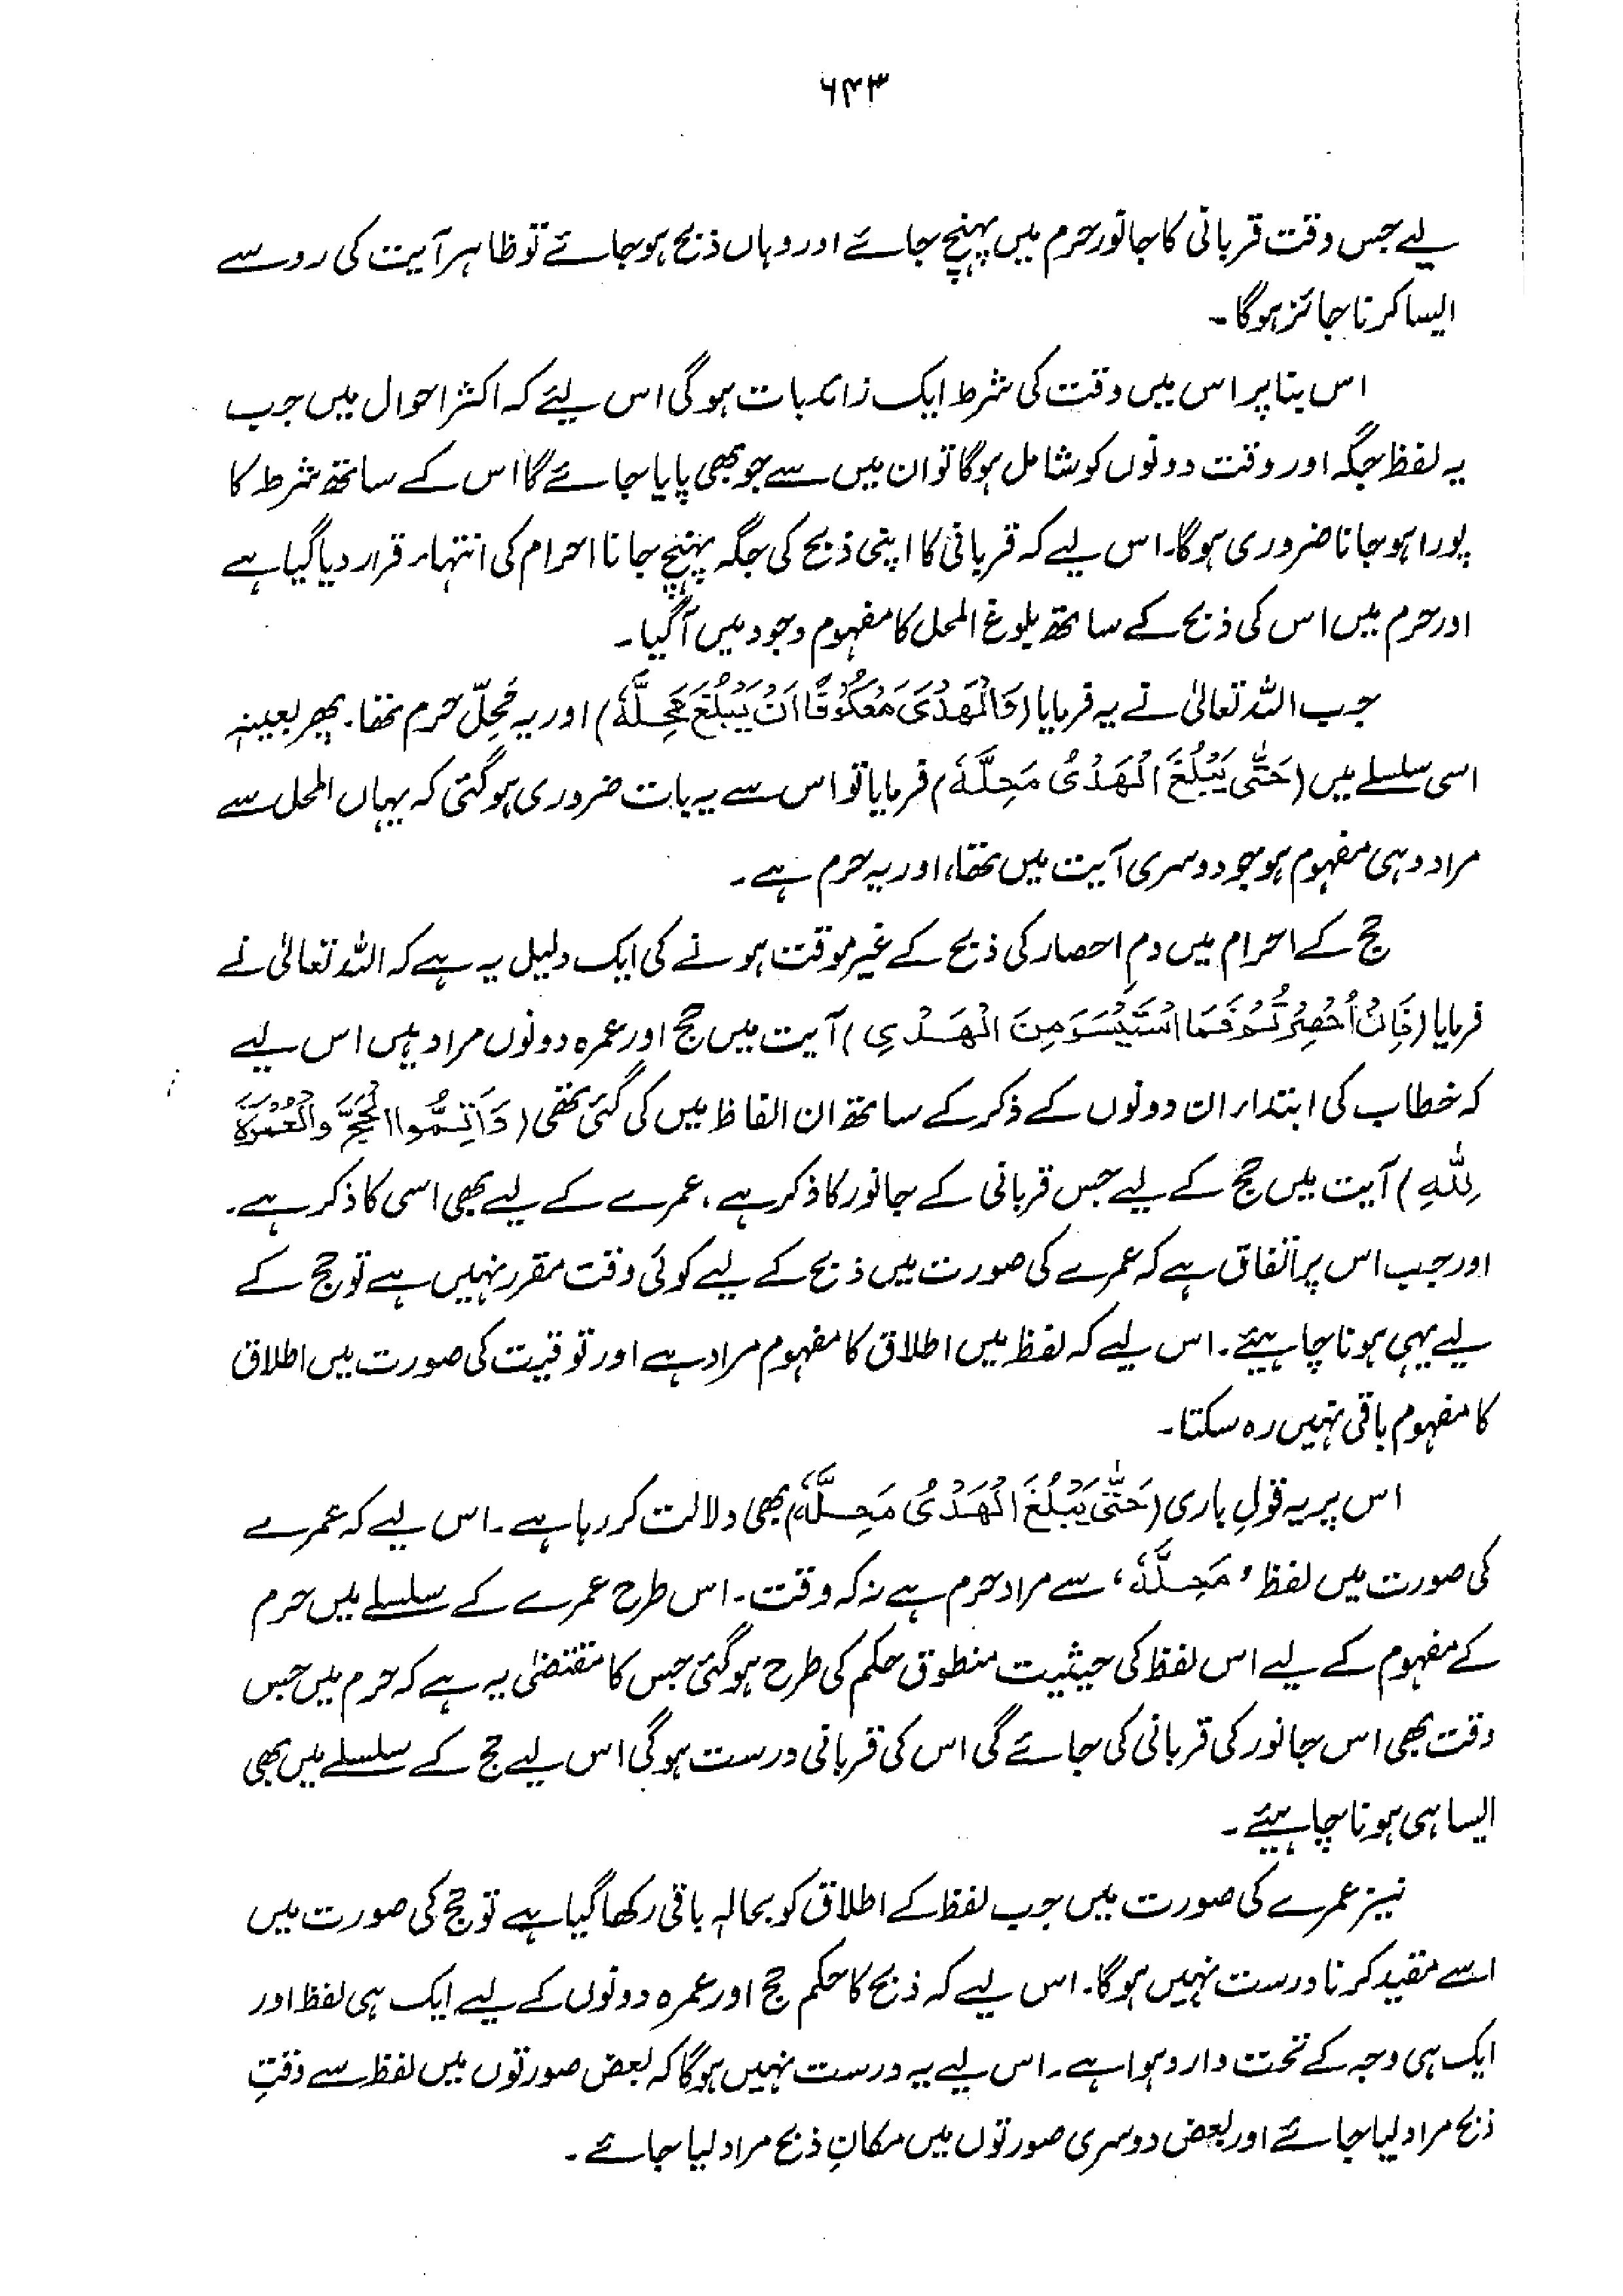 ۶۴۳
لیے جس وقت قربانی کا جانور حرم میں پہنچ جائے اور وہاں ذبح ہو جائے تو ظاہر آیت کی رو سے
ایسا کرنا جائز ہوگا۔
اس بنا پر اس میں وقت کی شرط ایک زائد بات ہوگی اس لیئے کہ اکثر احوال میں جب
یہ لفظ جگہ اور وقت دونوں کو شامل ہوگا تو ان میں سے جو بھی پایا جائے گا اس کے ساتھ شرط کا
پورا ہو جانا ضروری ہوگا۔ اس لیے کہ قربانی کا اپنی ذبح کی جگہ پہنچ جانا احرام کی انتہاء قرار دیا گیا ہے
اور حرم میں اس کی ذبح کے ساتھ بلوغ المحل کا مفہوم وجود میں آگیا۔
جب اللہ تعالیٰ نے یہ فرمایا (وَالْهَدْيَ مَعْكُوْفًا اَنْ يَّبْلُغَ مَحِلَّهٗ) اور یہ مَحِلّ حرم تھا۔ پھر بعینہٖ
اسی سلسلے میں (حَتّٰى يَبْلُغَ الْهَدْىُ مَحِلَّهٗ) فرمایا تو اس سے یہ بات ضروری ہوگئی کہ یہاں المحل سے
مراد وہی مفہوم ہو جو دوسری آیت میں تھا، اور یہ حرم ہے۔
حج کے احرام میں دمِ احصار کی ذبح کے غیر موقت ہونے کی ایک دلیل یہ ہے کہ اللہ تعالیٰ نے
فرمایا (فَاِنْ اُحْصِرْتُمْ فَمَا اسْتَيْسَرَ مِنَ الْهَدْىِ) آیت میں حج اور عمرہ دونوں مراد ہیں اس لیے
کہ خطاب کی ابتداء ان دونوں کے ذکر کے ساتھ ان الفاظ میں کی گئی تھی (وَاَتِمُّوا الْحَجَّ وَالْعُمْرَةَ
لِلّٰهِ) آیت میں حج کے لیے جس قربانی کے جانور کا ذکر ہے، عمرے کے لیے بھی اسی کا ذکر ہے۔
اور جب اس پر اتفاق ہے کہ عمرے کی صورت میں ذبح کے لیے کوئی وقت مقرر نہیں ہے تو حج کے
لیے یہی ہونا چاہیئے۔ اس لیے کہ لفظ میں اطلاق کا مفہوم مراد ہے اور توقیت کی صورت میں اطلاق
کا مفہوم باقی نہیں رہ سکتا۔
اس پر یہ قولِ باری (حَتّٰى يَبْلُغَ الْهَدْىُ مَحِلَّهٗ) بھی دلالت کر رہا ہے۔ اس لیے کہ عمرے
کی صورت میں لفظ ’مَحِلَّهٗ‘ سے مراد حرم ہے نہ کہ وقت۔ اس طرح عمرے کے سلسلے میں حرم
کے مفہوم کے لیے اس لفظ کی حیثیت منطوق حکم کی طرح ہوگئی جس کا مقتضیٰ یہ ہے کہ حرم میں جس
وقت بھی اس جانور کی قربانی کی جائے گی اس کی قربانی درست ہوگی اس لیے حج کے سلسلے میں بھی
ایسا ہی ہونا چاہیئے۔
نیز عمرے کی صورت میں جب لفظ کے اطلاق کو بحالہٖ باقی رکھا گیا ہے تو حج کی صورت میں
اسے مقید کرنا درست نہیں ہوگا۔ اس لیے کہ ذبح کا حکم حج اور عمرہ دونوں کے لیے ایک ہی لفظ اور
ایک ہی وجہ کے تحت وارد ہوا ہے۔ اس لیے یہ درست نہیں ہوگا کہ بعض صورتوں میں لفظ سے وقتِ
ذبح مراد لیا جائے اور بعض دوسری صورتوں میں مکانِ ذبح مراد لیا جائے۔